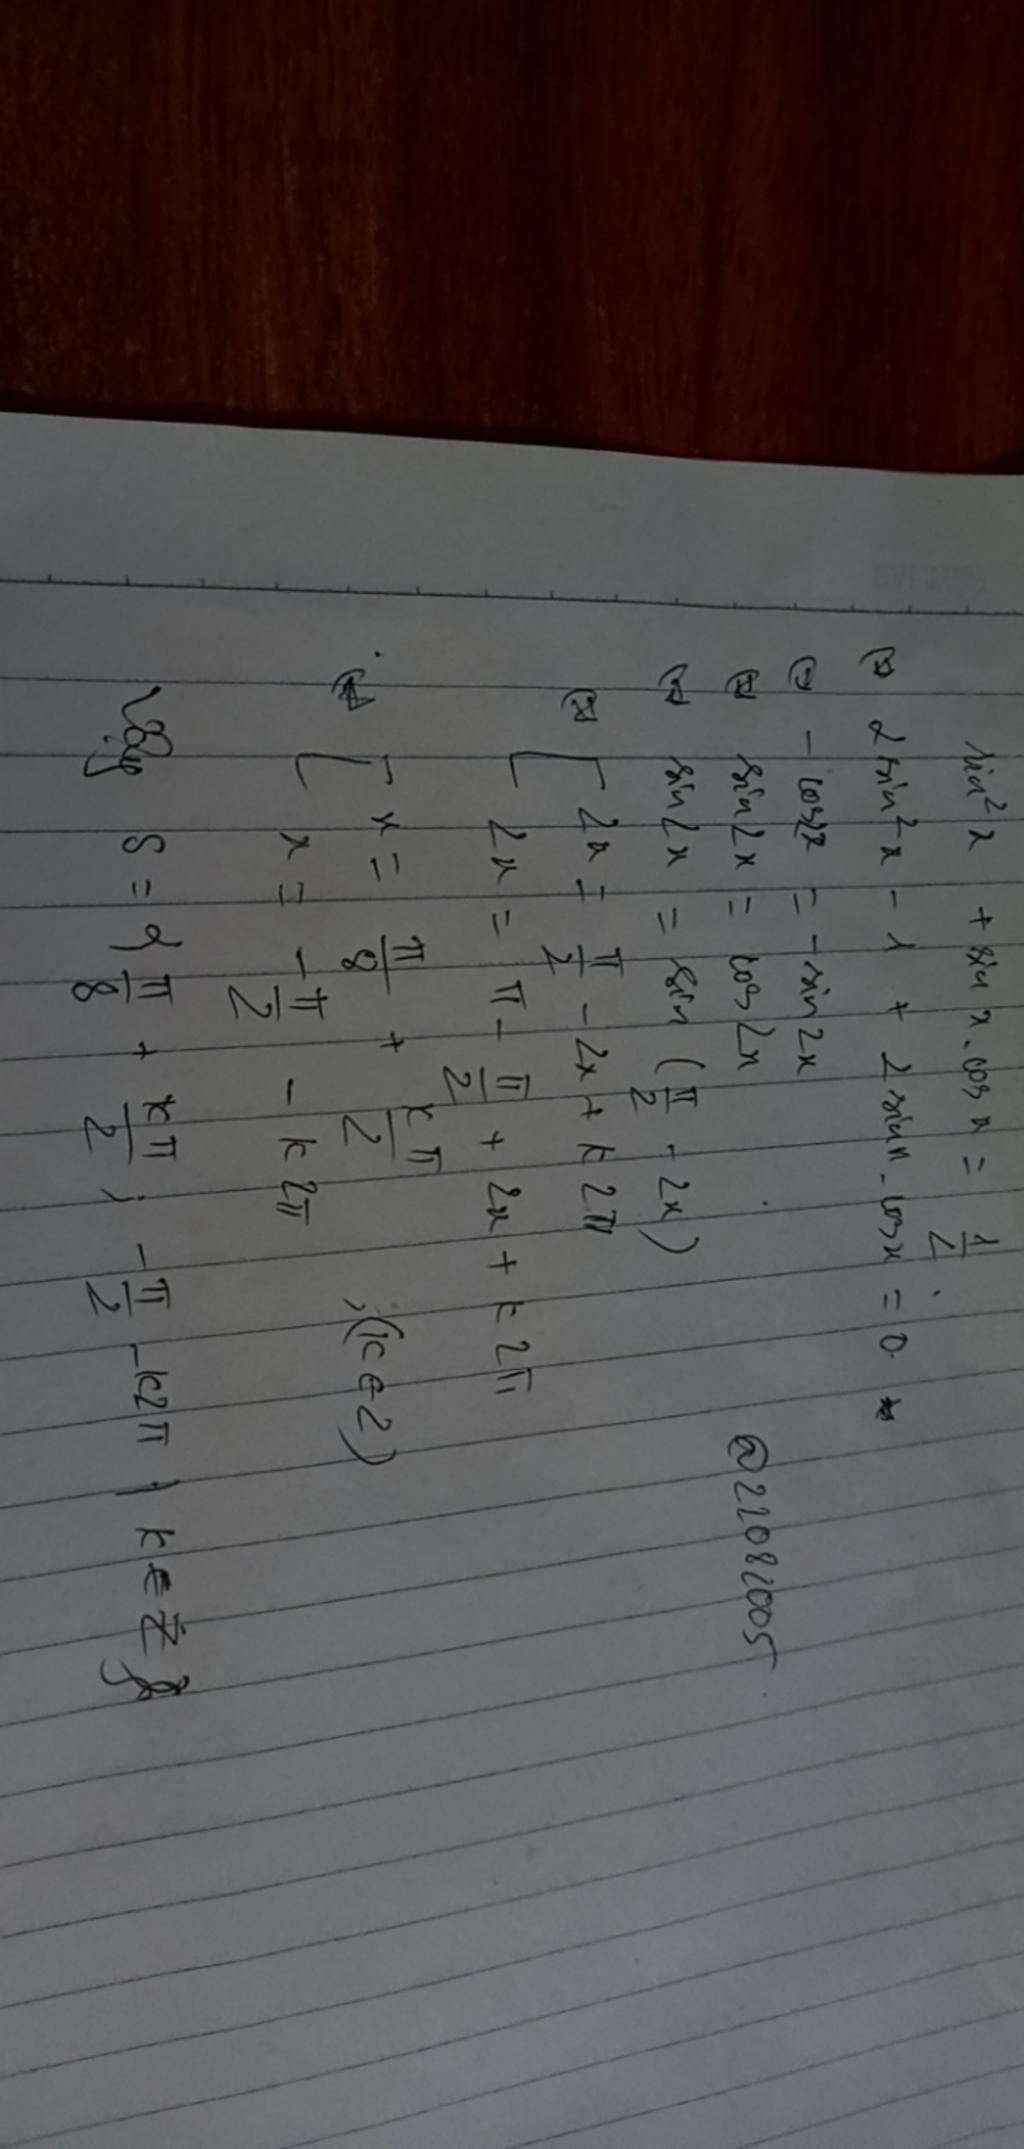 sin²x + sin x . cos x = 1/2 .
⇔ 2 sin²x - 1 + 2 sin x . cos x = 0.
⇔ - cos2x = - sin 2x
⇔ sin 2x = cos 2x
@22082005
⇔ sin 2x = sin (π/2 - 2x)
⇔ [ 2x = π/2 - 2x + k 2π
2x = π - π/2 + 2x + k 2π
⇔ [ x = π/8 + kπ/2 ; (k ∈ Z)
x = - π/2 - k 2π
Vậy S = { π/8 + kπ/2 ; - π/2 - k2π | k ∈ Z }